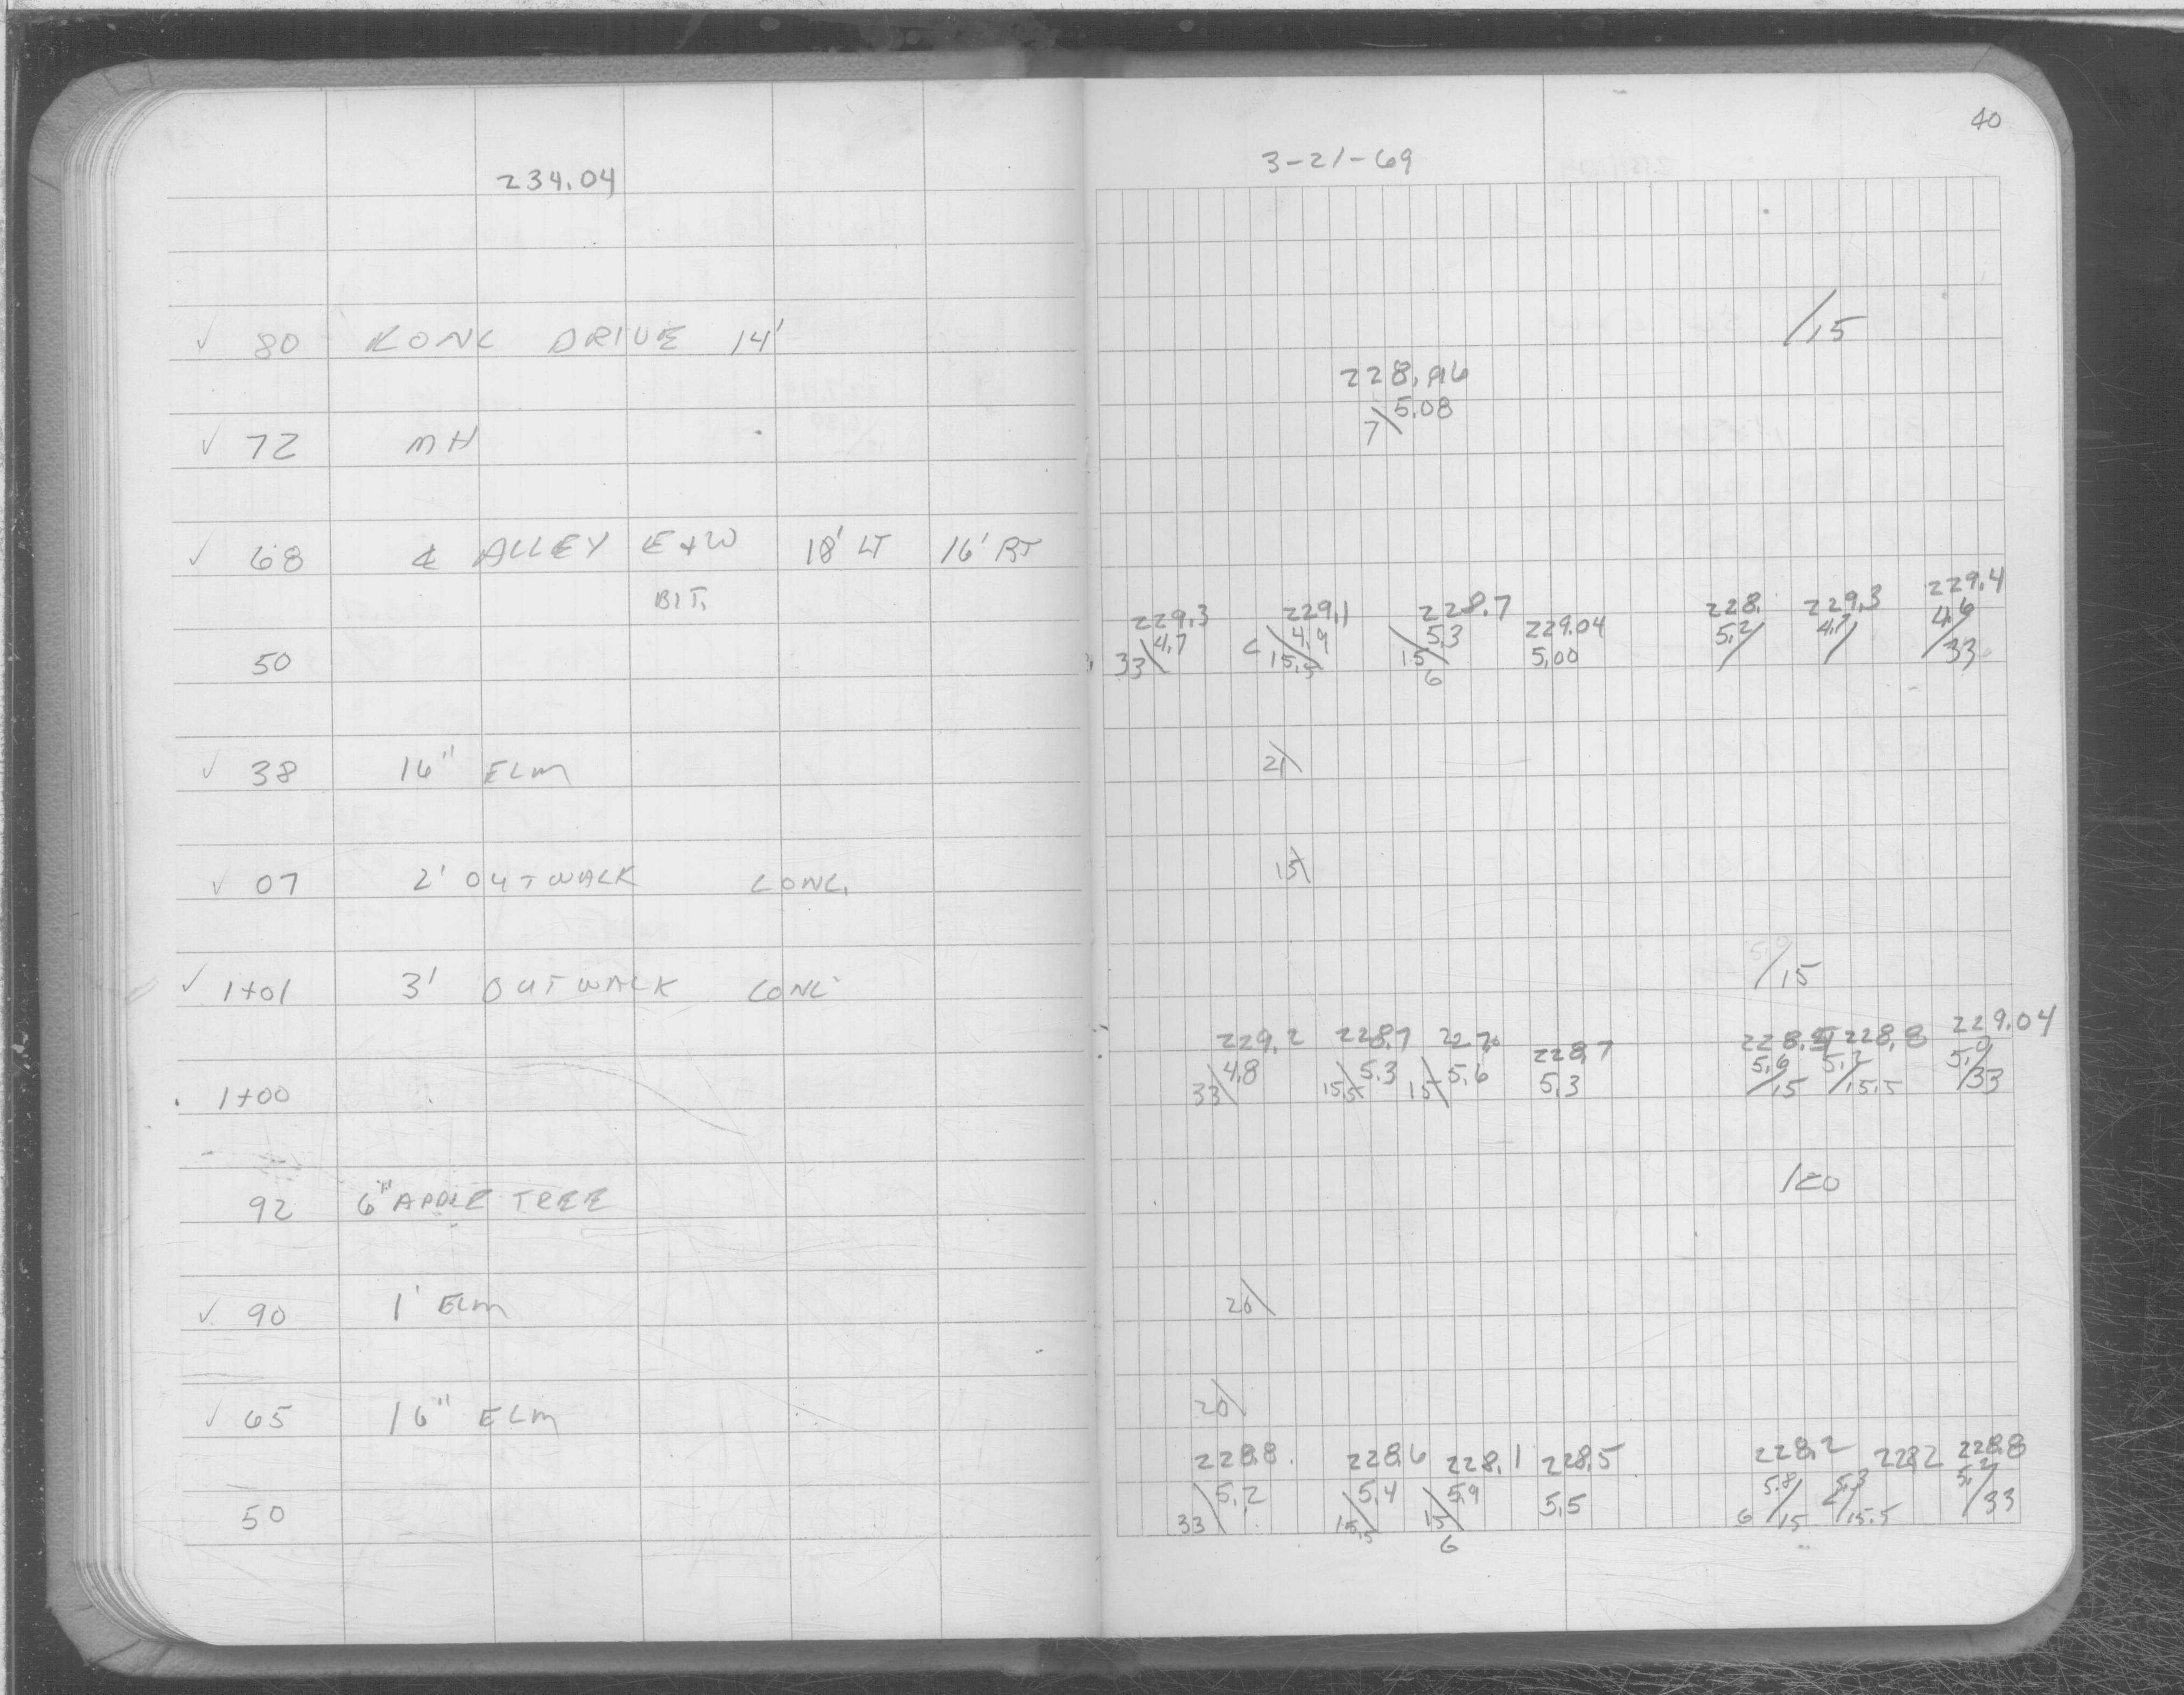 40
234.04
3-21-69
✓ 80 CONC DRIVE 14' /15
228.96
5.08
✓ 72 MH 7\
✓ 68 ℄ ALLEY E+W 18' LT 16' RT
BIT.
229.3 229.1 228.7 229.04 228. 229.3 229.4
4.7 4.9 5.3 5.00 5.2/ 4.7/ 4.6
50 33\ C 15.5\ 15\ /33
6
✓ 38 16" ELM 21\
✓ 07 2' OUTWALK CONC. 15\
✓ 1+01 3' OUTWALK CONC /15
229.2 228.7 228.7 228.8 229.04
4.8 5.3 5.6 5.3 5.6 5.2 5.0
1+00 33\ 15.5\ 15\ /15 /15.5 /33
92 6" APPLE TREE /20
✓ 90 1' ELM 20\
✓ 65 16" ELM 20\
228.8 228.6 228.1 228.5 228.2 228.2 228.8
5.2 5.4 5.9 5.5 5.8 5.3 5.2
50 33\ 15.5\ 15\ 6 /15 /15.5 /33
6